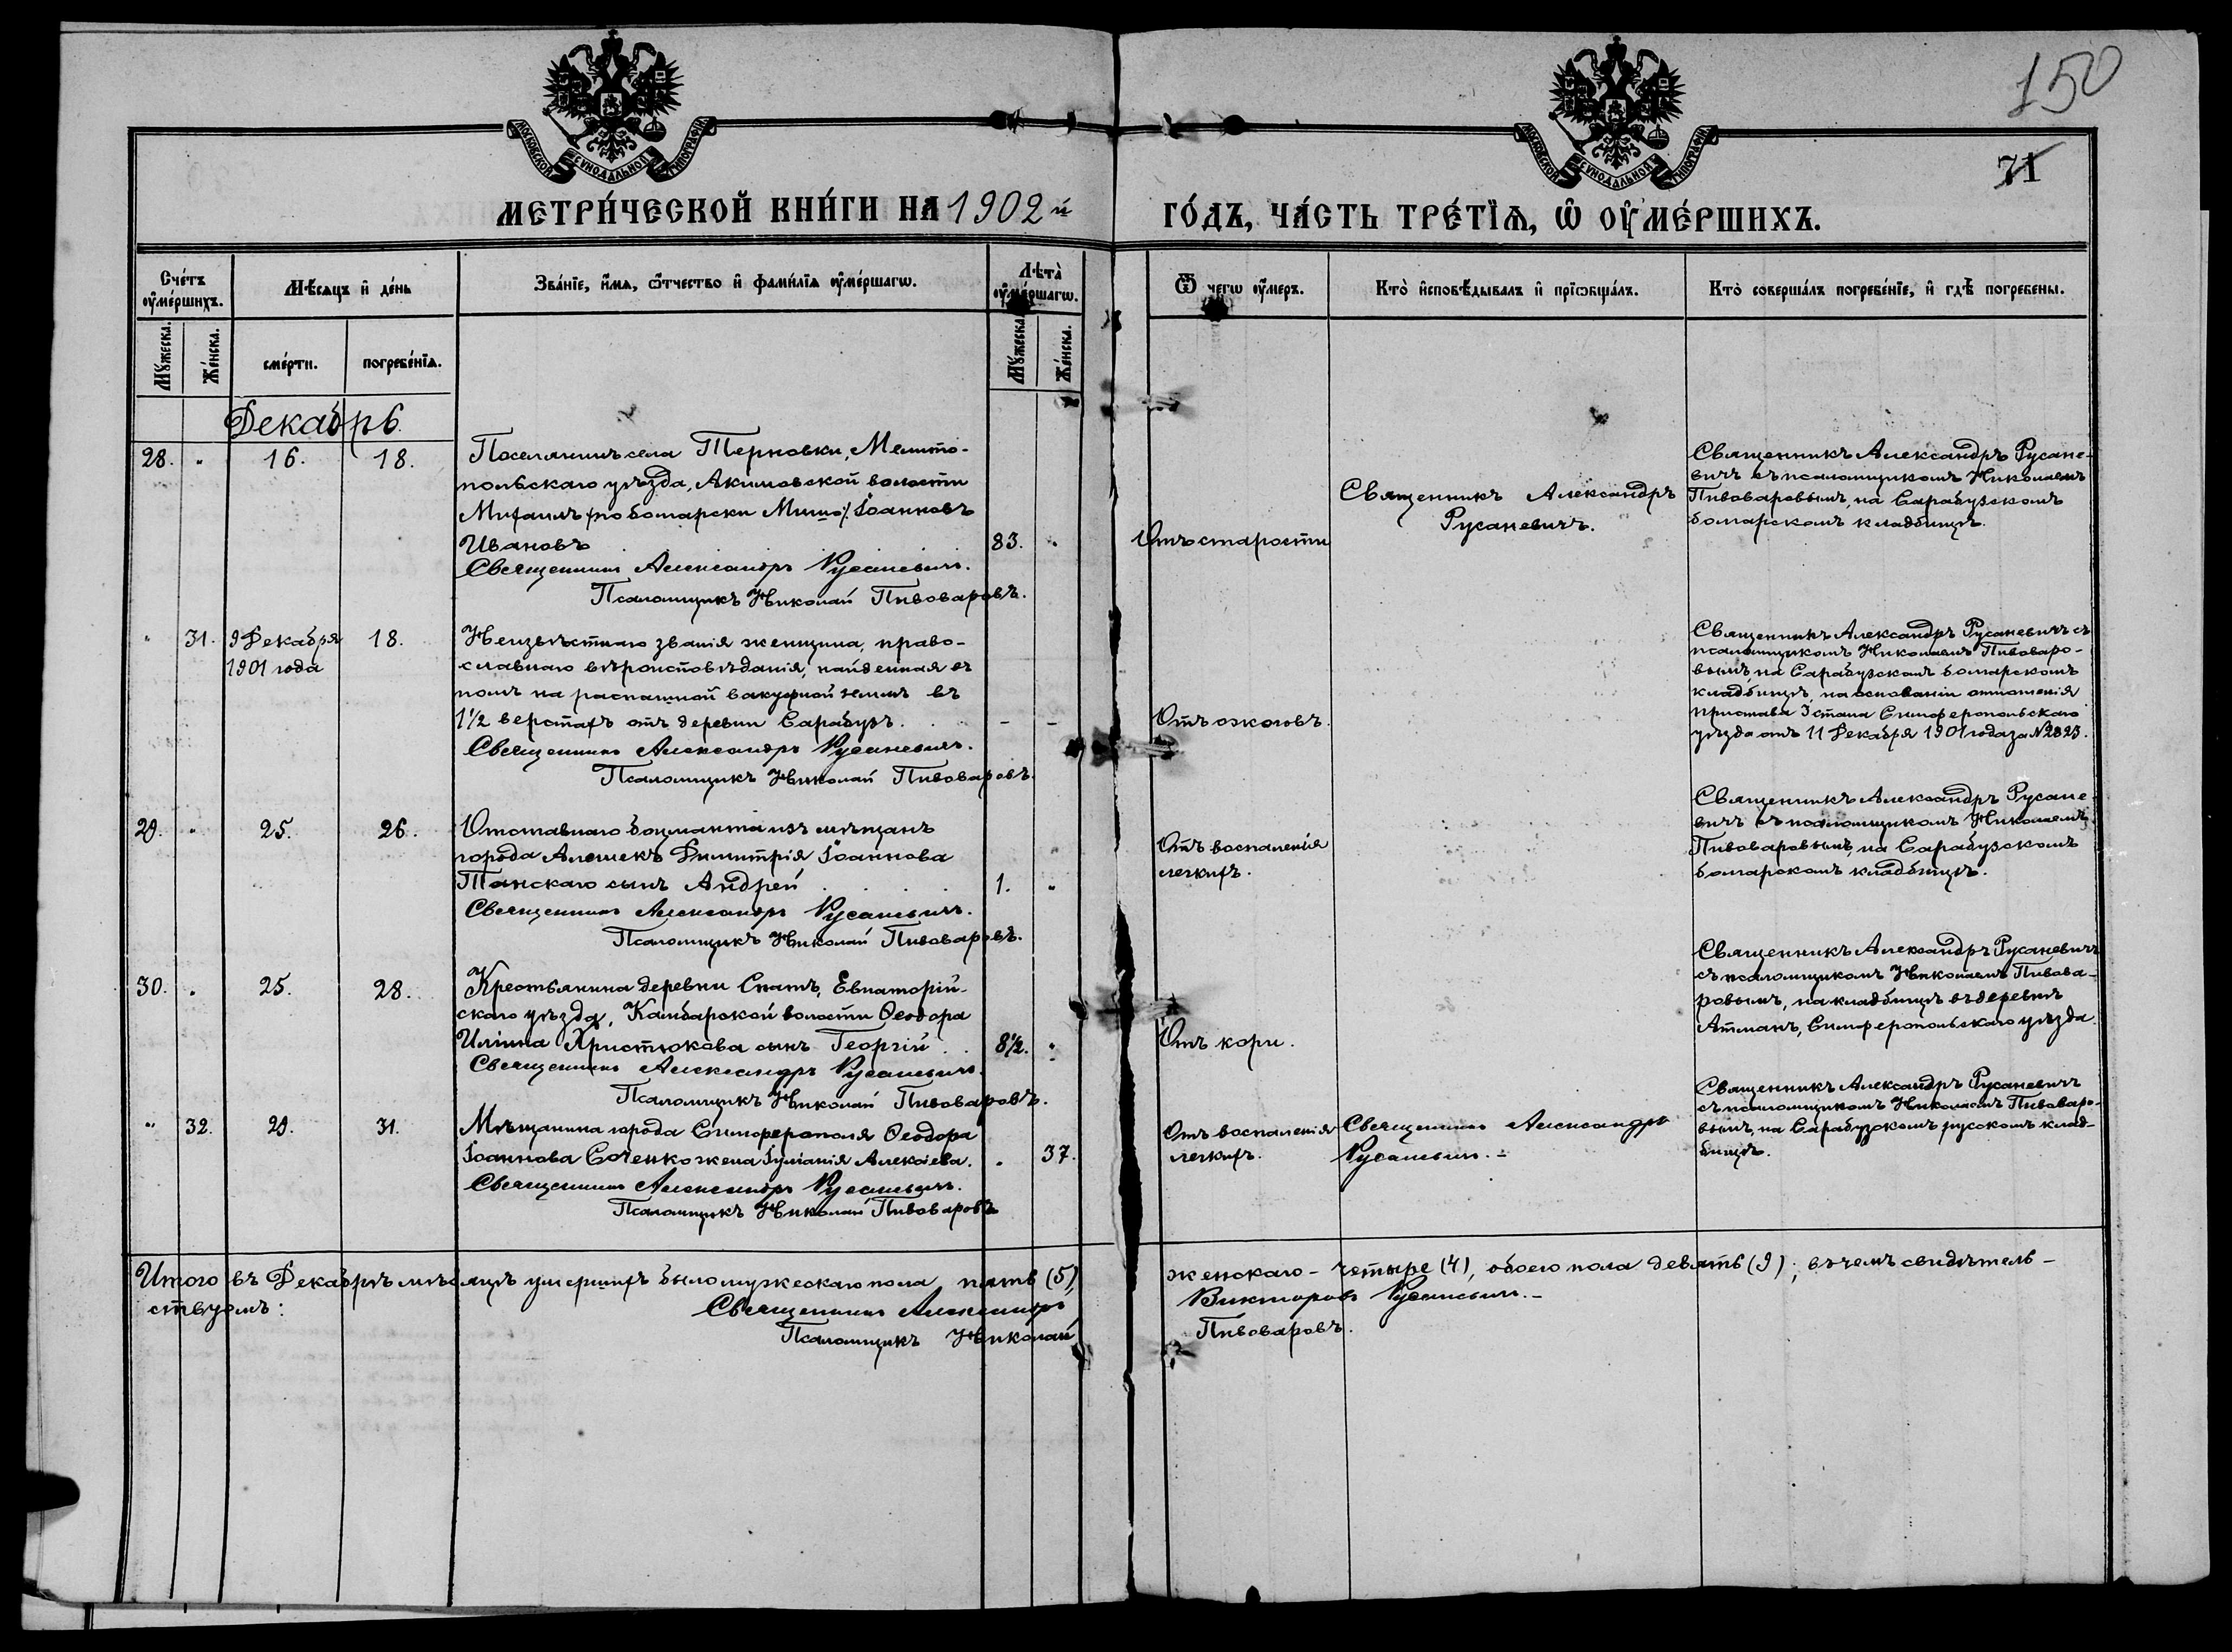 150
71
МОСКОВСКОЙ СѴНОДАЛЬНОЙ ТИПОГРАФІИ
МОСКОВСКОЙ СѴНОДАЛЬНОЙ ТИПОГРАФІИ
МЕТРИ́ЧЕСКОЙ КНИ́ГИ НА 1902 й
ГО́ДЪ, ЧА́СТЬ ТРЕ́ТЇѦ, Ѡ ОУ҆МЕ́РШИХЪ.
Сче́тъ оу҆ме́ршихъ.
Мѣ́сяцъ и҆ де́нь
Зва́нїе, и҆́мѧ, ѻ҆́тчество и҆ фамі́лїѧ оу҆ме́ршагѡ.
Лѣ́та оу҆ме́ршагѡ.
Ѿ чегѡ̀ оу҆́меръ.
Кто̀ и҆сповѣ́дывалъ и҆ прїѡбща́лъ.
Кто̀ соверша́лъ погребе́нїе, и҆ гдѣ̀ погребены.
Мꙋ́жеска.
Же́нска.
сме́рти.
погребе́нїѧ.
Мꙋ́жеска.
Же́нска.
Декабрь.
28. " 16. 18.
Поселянинъ села Терновки, Мелито-
польскаго уѣзда, Акимовской волости
Михаилъ /по болгарски Мишо/. Іоанновъ
Ивановъ 83. "
Священникъ Александръ Русаневичъ.
Псаломщикъ Николай Пивоваровъ.
Отъ старости
Священникъ Александръ
Русаневичъ.
Священникъ Александръ Русане-
вичъ съ псаломщикомъ Николаемъ
Пивоваровымъ, на Сарабузскомъ
болгарскомъ кладбищѣ.
" 31. 9 Декабря 1901 года 18.
Неизвѣстнаго званія женщина, право-
славнаго вѣроисповѣданія, найденная въ
полѣ на распашной вакуфной землѣ въ
1½ верстахъ отъ деревни Сарабузъ. – –
Священникъ Александръ Русаневичъ.
Псаломщикъ Николай Пивоваровъ.
Отъ ожоговъ.
Священникъ Александръ Русаневичъ съ
псаломщикомъ Николаемъ Пивоваро-
вымъ на Сарабузскомъ болгарскомъ
кладбищѣ, на основаніи отношенія
пристава 3 стана Симферопольскаго
уѣзда отъ 11 Декабря 1901 года за №2823.
29. " 25. 26.
Отставнаго боцманта изъ мѣщанъ
города Алешекъ Димитрія Іоаннова
Танскаго сынъ Андрей 1. "
Священникъ Александръ Русаневичъ.
Псаломщикъ Николай Пивоваровъ.
Отъ воспаленія
легкихъ.
Священникъ Александръ Русане-
вичъ съ псаломщикомъ Николаемъ
Пивоваровымъ, на Сарабузскомъ
болгарскомъ кладбищѣ.
30. " 25. 28.
Крестьянина деревни Спатъ, Евпаторій-
скаго уѣзда, Камбарской волости Ѳеодора
Иліина Христюкова сынъ Георгій 8½. "
Священникъ Александръ Русаневичъ.
Псаломщикъ Николай Пивоваровъ.
Отъ кори.
Священникъ Александръ Русаневичъ
съ псаломщикомъ Николаемъ Пивова-
ровымъ, на кладбищѣ въ деревнѣ
Атманъ, Симферопольскаго уѣзда.
" 32. 29. 31.
Мѣщанина города Симферополя Ѳеодора
Іоаннова Соченко жена Іуліанія Алексіева. " 37.
Священникъ Александръ Русаневичъ.
Псаломщикъ Николай Пивоваровъ
Отъ воспаленія
легкихъ.
Священникъ Александръ
Русаневичъ. –
Священникъ Александръ Русаневичъ
съ псаломщикомъ Николаемъ Пивоваро-
вымъ, на Сарабузскомъ русскомъ клад-
бищѣ.
Итого въ Декабрѣ мѣсяцѣ умершихъ было мужескаго пола пять (5), женскаго – четыре (4), обоего пола девять (9); въ чемъ свидѣтель-
ствуемъ:
Священникъ Александръ Викторовъ Русаневичъ. –
Псаломщикъ Николай Пивоваровъ.